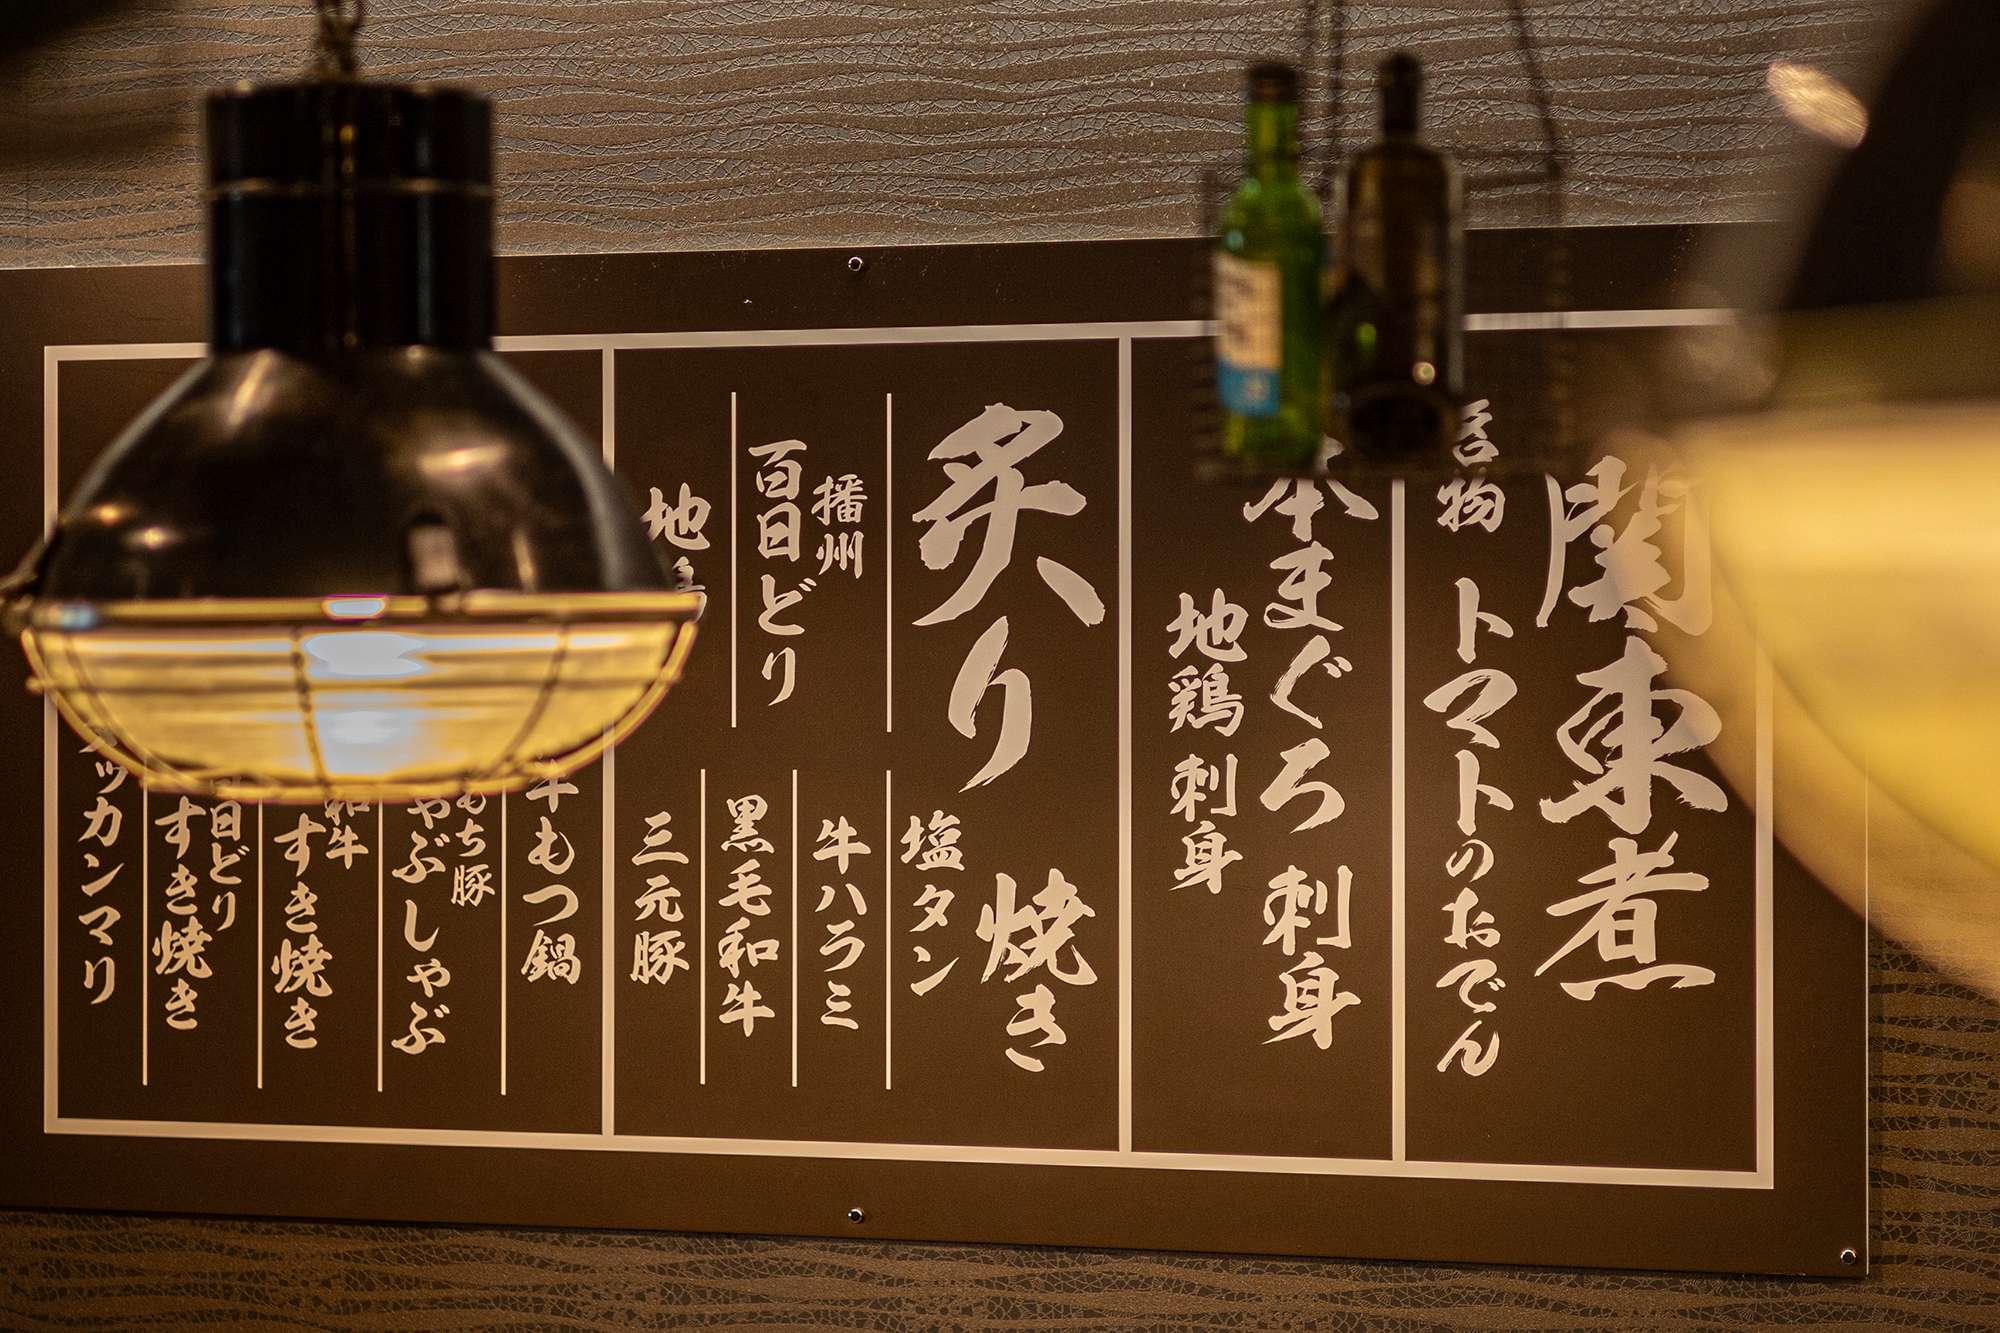 関東煮
名物 トマトのおでん
本まぐろ 刺身
地鶏 刺身
炙り 焼き
塩タン
牛ハラミ
黒毛和牛
三元豚
播州
百日どり
地鶏
牛もつ鍋
もち豚
しゃぶしゃぶ
和牛
すき焼き
百日どり
すき焼き
ッカンマリ